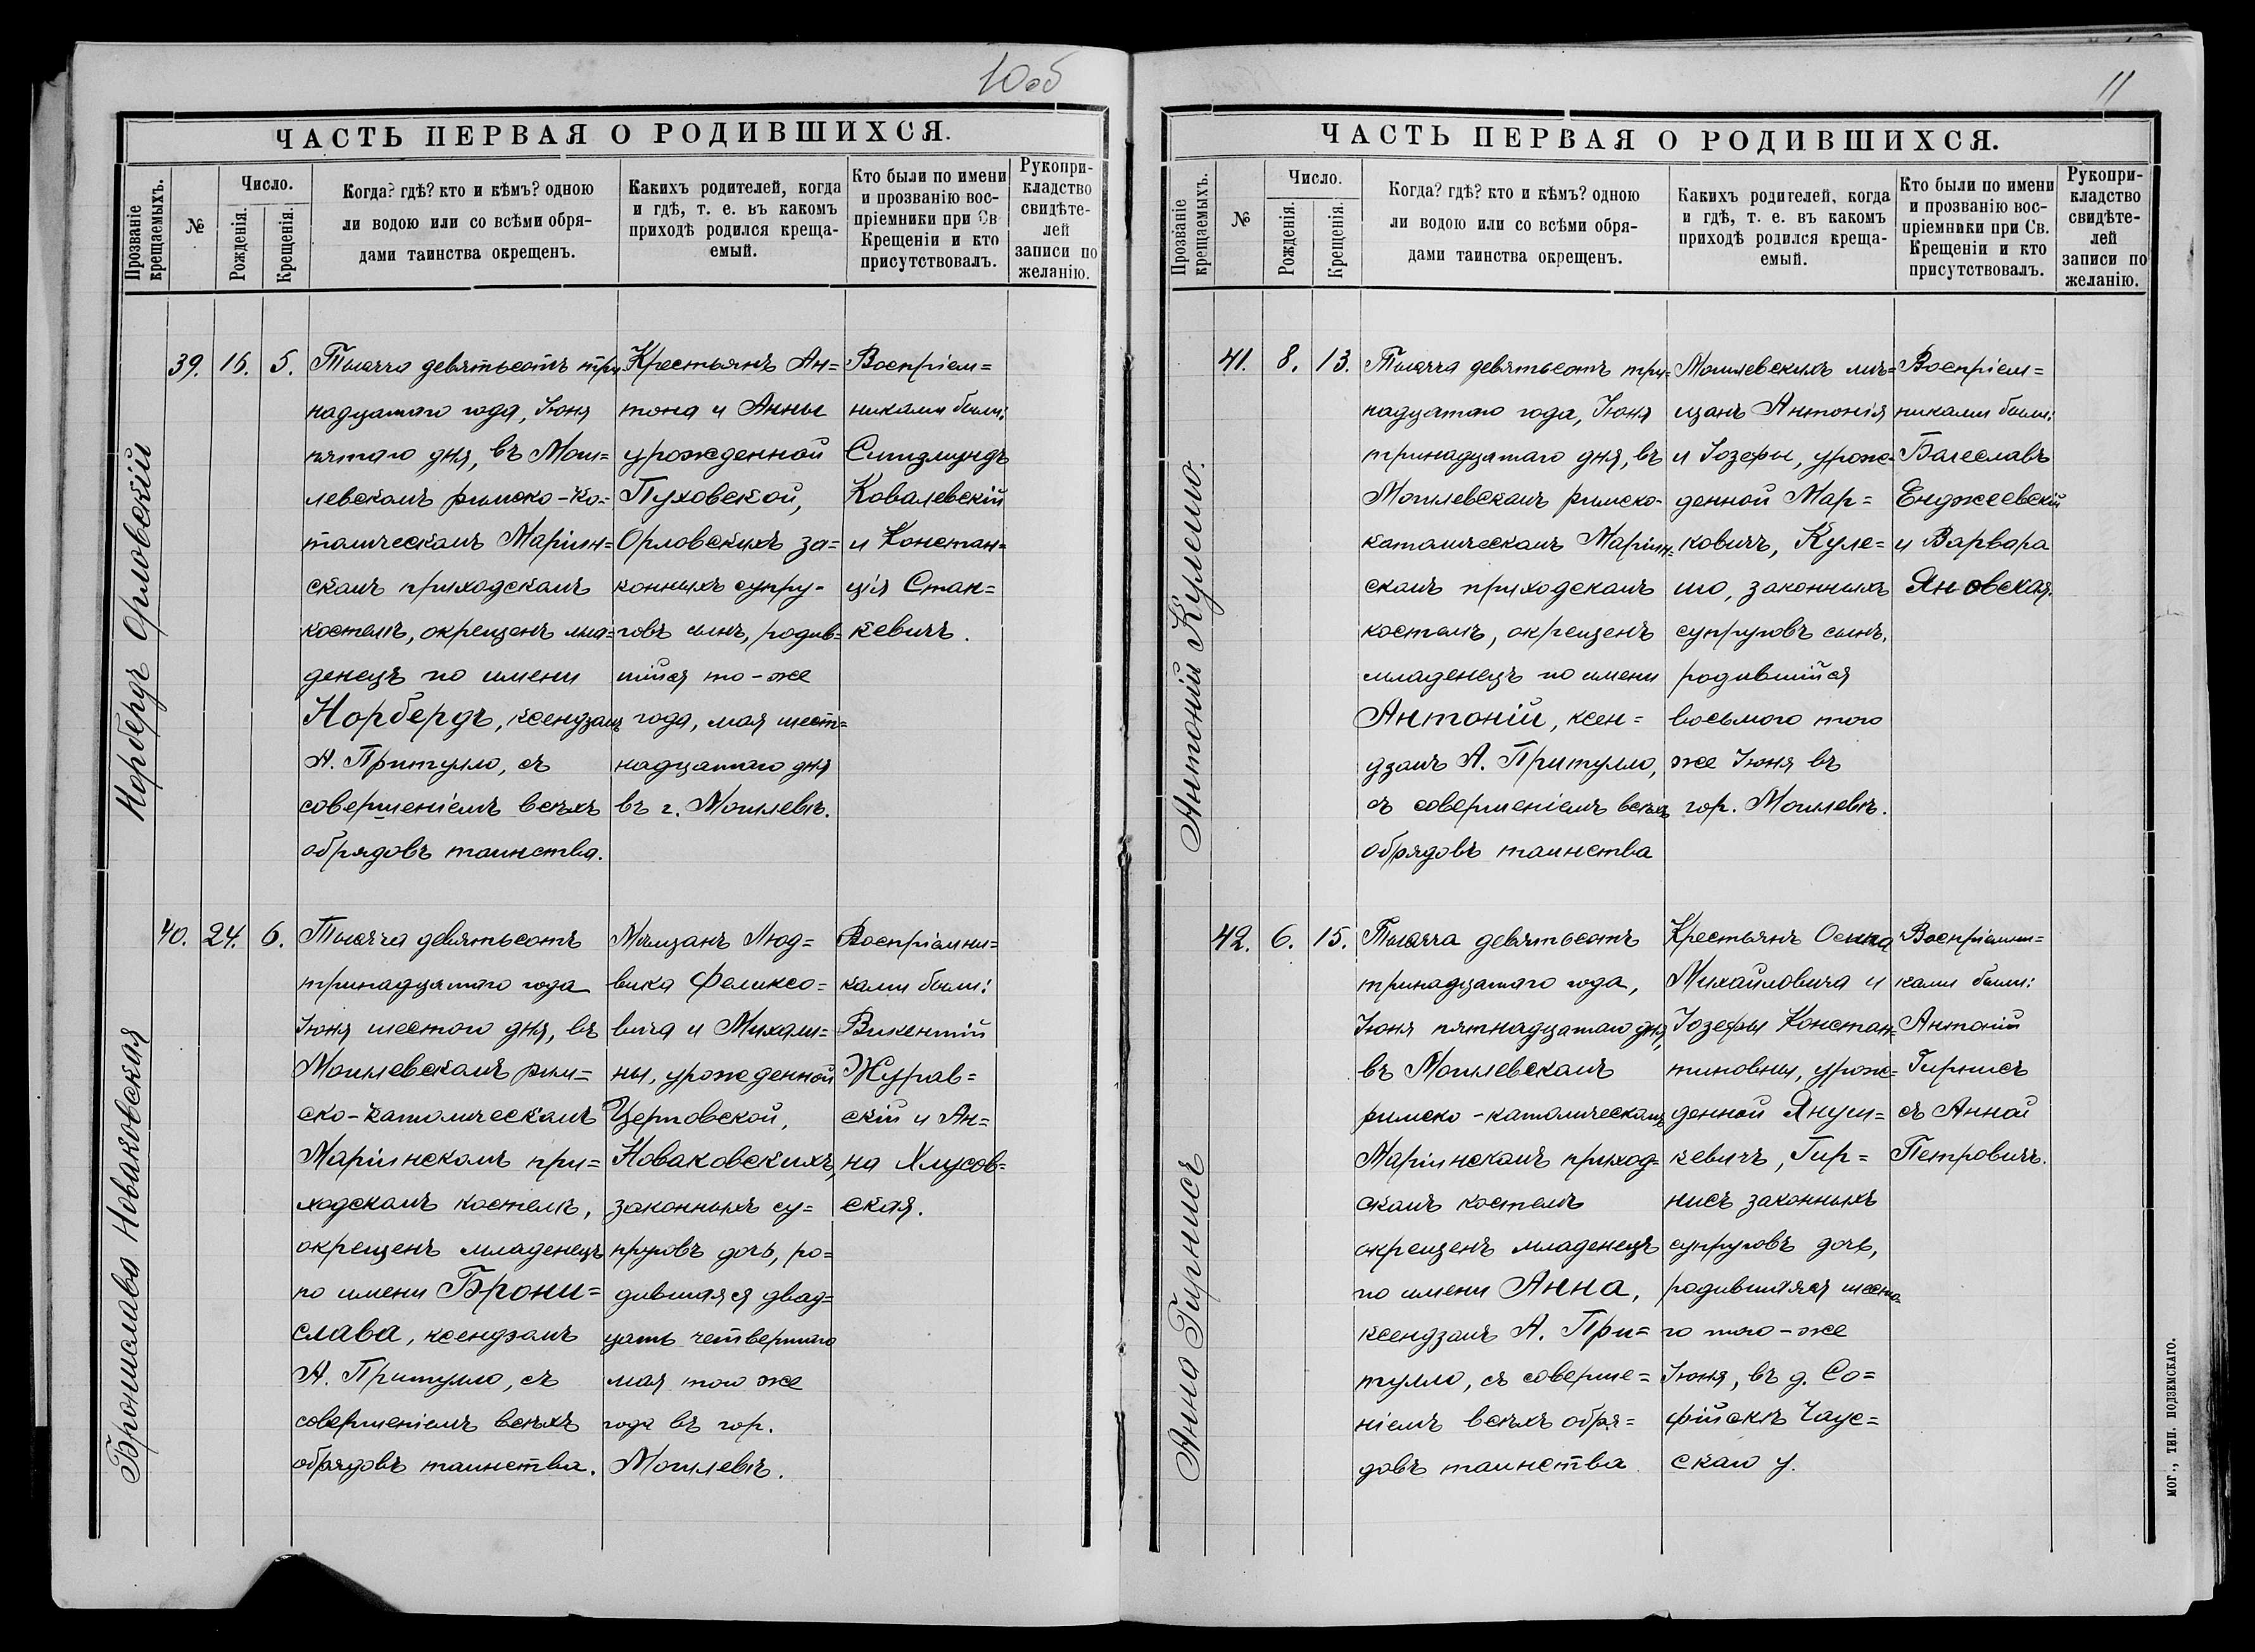 10об
ЧАСТЬ ПЕРВАЯ О РОДИВШИХСЯ.
Прозваніе крещаемыхъ.
№
Число.
Рожденія.
Крещенія.
Когда? гдѣ? кто и кѣмъ? одною
ли водою или со всѣми обря-
дами таинства окрещенъ.
Какихъ родителей, когда
и гдѣ, т. е. въ какомъ
приходѣ родился креща-
емый.
Кто были по имени
и прозванію вос-
пріемники при Св
Крещеніи и кто
присутствовалъ.
Рукопри-
кладство
свидѣте-
лей
записи по
желанію.
Норбердъ Орловскій
39. 16. 5.
Тысяча девятьсотъ три
надцатаго года, Іюня
пятаго дня, въ Моги=
левскомъ римско-ка=
толическомъ Маріин=
скомъ приходскомъ
костелѣ, окрещенъ мла=
денецъ по имени
Норбердъ, ксендзомъ
А. Притулло, съ
совершеніемъ всѣхъ
обрядовъ таинства.
Крестьянъ Ан=
тона и Анны
урожденной
Пуховской,
Орловскихъ за=
конныхъ супру-
говъ сынъ, родив=
шійся то-же
года, мая шест=
надцатаго дня
въ г. Могилевѣ.
Воспріем=
никами были:
Сигизмундъ
Ковалевскій
и Констан=
ція Стан=
кевичъ.
Бронислава Новаковская
40. 24. 6.
Тысяча девятьсотъ
тринадцатаго года
Іюня шестого дня, въ
Могилевскомъ рим=
ско-католическомъ
Маріинскомъ при=
ходскомъ костелѣ,
окрещенъ младенецъ
по имени Брони=
слава, ксендзомъ
А. Притулло, съ
совершеніемъ всѣхъ
обрядовъ таинства.
Мѣщанъ Люд=
вика Феликсо=
вича и Михали=
ны, урожденной
Цертовской,
Новаковскихъ,
законныхъ су=
пруговъ дочь, ро=
дившаяся двад=
цать четвертаго
мая того же
года въ гор.
Могилевѣ.
Воспріемни=
ками были:
Викентій
Журав=
скій и Ан=
на Хлусов=
ская.
11
ЧАСТЬ ПЕРВАЯ О РОДИВШИХСЯ.
Прозваніе крещаемыхъ.
№
Число.
Рожденія.
Крещенія.
Когда? гдѣ? кто и кѣмъ? одною
ли водою или со всѣми обря-
дами таинства окрещенъ.
Какихъ родителей, когда
и гдѣ, т. е. въ какомъ
приходѣ родился креща-
емый.
Кто были по имени
и прозванію вос-
пріемники при Св.
Крещеніи и кто
присутствовалъ.
Рукопри-
кладство
свидѣте-
лей
записи по
желанію.
Антоній Кулешо.
41. 8. 13.
Тысяча девятьсотъ три=
надцатаго года, Іюня
тринадцатаго дня, въ
Могилевскомъ римско-
католическомъ Маріин=
скомъ приходскомъ
костелѣ, окрещенъ
младенецъ по имени
Антоній, ксен=
дзомъ А. Притулло,
съ совершеніемъ всѣхъ
обрядовъ таинства
Могилевскихъ мѣ=
щанъ Антонія
и Іозефы, урож=
денной Мар=
ковичъ, Куле=
шо, законныхъ
супруговъ сынъ,
родившійся
восьмого того
же Іюня въ
гор. Могилевѣ.
Воспріем=
никами были:
Болеславъ
Енджеевскій
и Варвара
Яновская.
Анна Гирнисъ
42. 6. 15.
Тысяча девятьсотъ
тринадцатаго года,
Іюня пятнадцатаго дня,
въ Могилевскомъ
римско-католическомъ
Маріинскомъ приход=
скомъ костелѣ
окрещенъ младенецъ
по имени Анна,
ксендзомъ А. При=
тулло, съ соверше=
ніемъ всѣхъ обря=
довъ таинства
Крестьянъ Осипа
Михайловича и
Іозефы Констан=
тиновны, урож=
денной Януш=
кевичъ, Гир=
нисъ законныхъ
супруговъ дочь,
родившаяся шесто
го того-же
Іюня, въ д. Со=
фійскѣ Чаус=
скаго у.
Воспріемни=
ками были:
Антоній
Гирнисъ
съ Анной
Петровичъ.
МОГ., ТИП. ПОДЗЕМСКАГО.